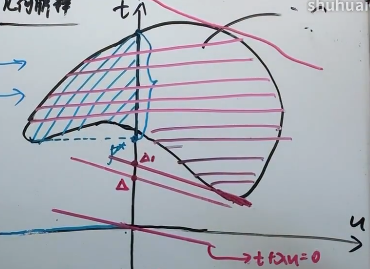 几何解释
t
shuhuai
p*
Δ₁
Δ
u
t+λu=0